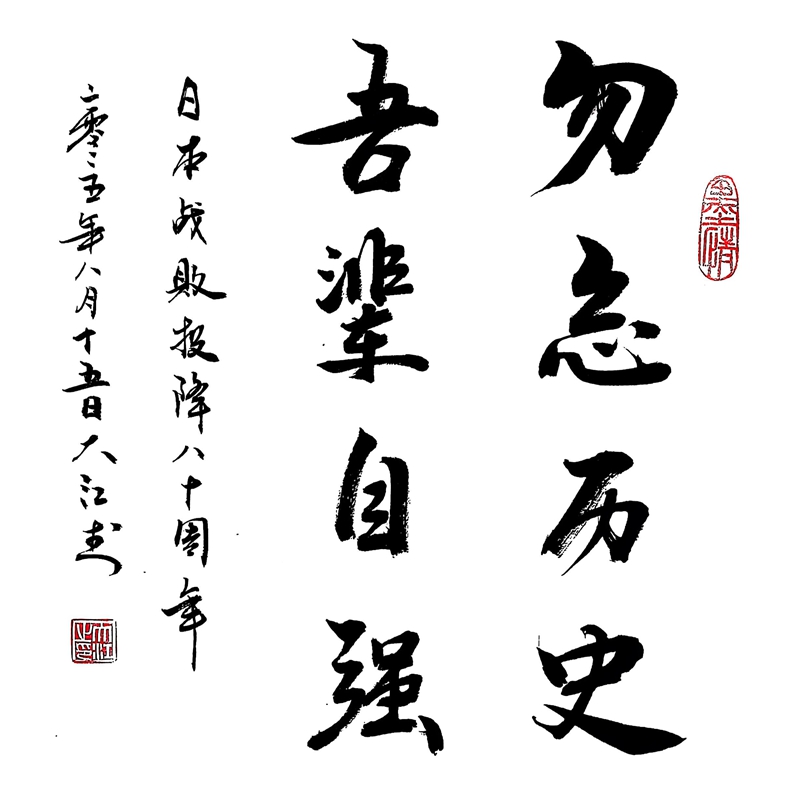 勿忘历史
吾辈自强
日本战敗投降八十周年
二零二五年八月十五日大江书